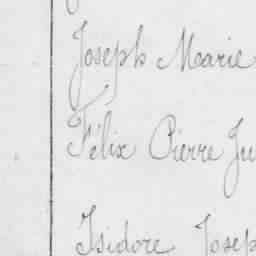 Joseph Marie
Félix Pierre Ju
Isidore Josep